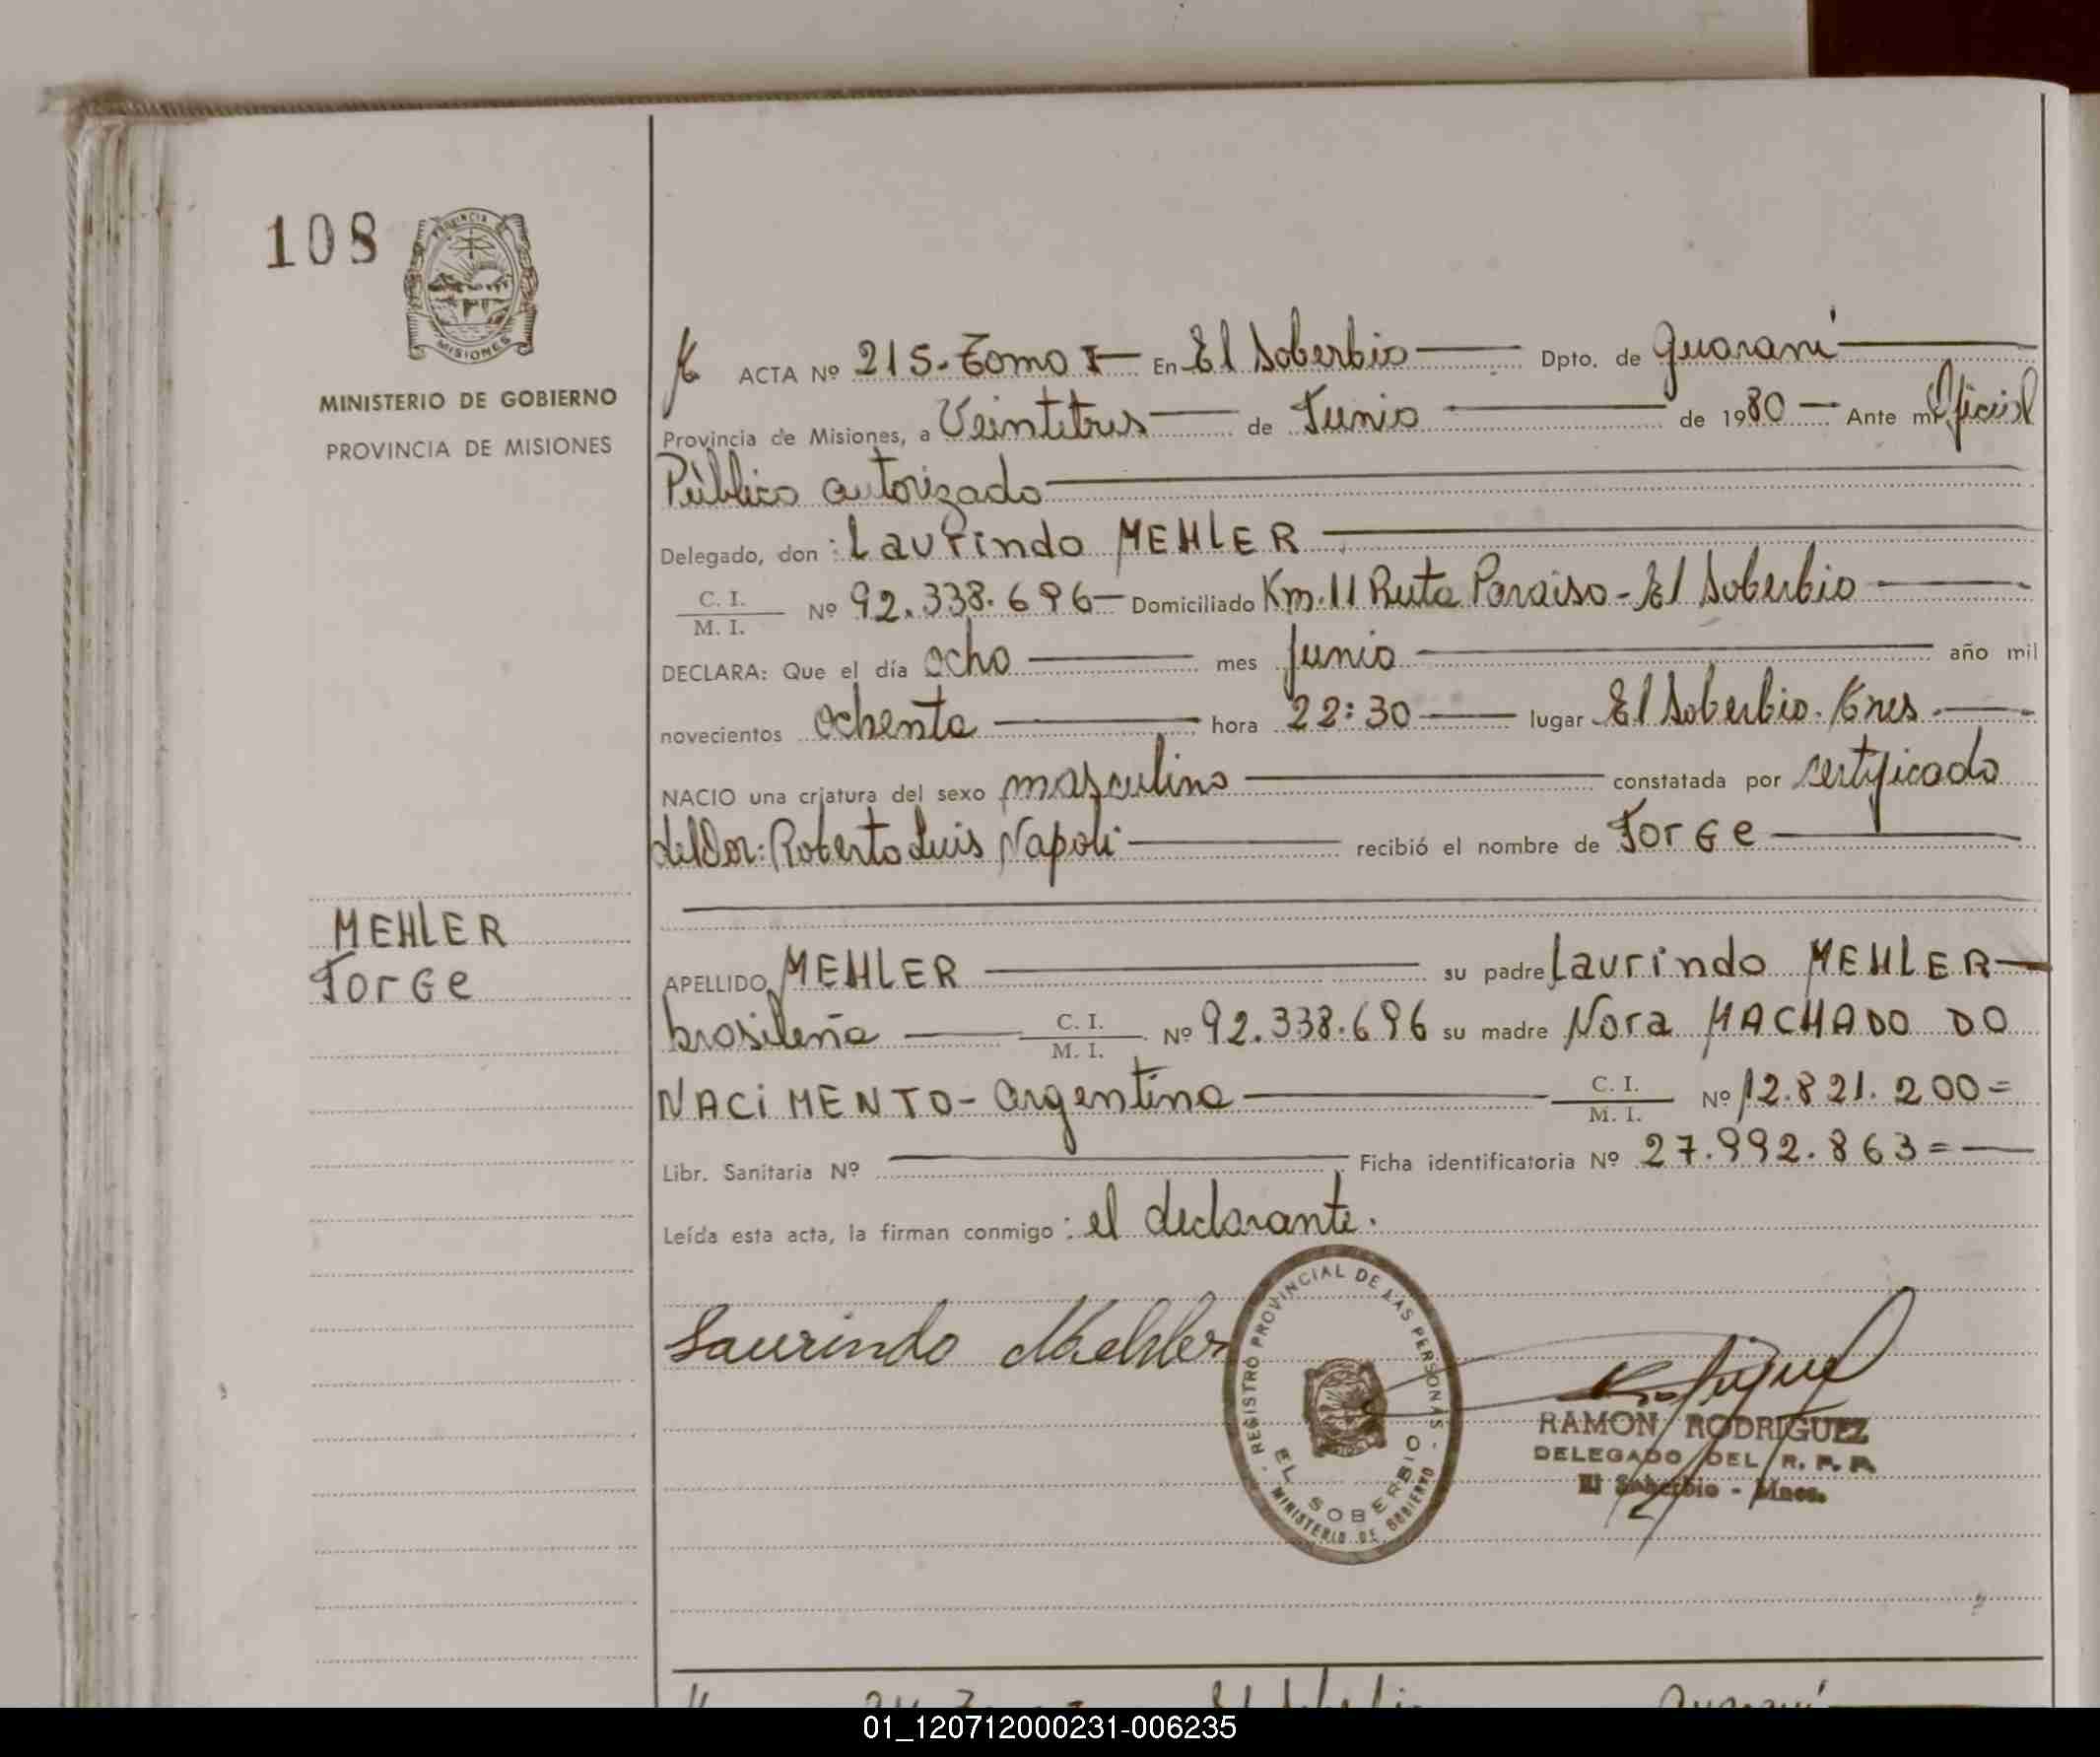 108
PROVINCIA
MISIONES
MINISTERIO DE GOBIERNO
PROVINCIA DE MISIONES
MEHLER
Jorge
ACTA Nº 215-Tomo I En El Soberbio Dpto. de Guaraní
Provincia de Misiones, a Veintitres de Junio de 1980 Ante mí Oficial
Público autorizado
Delegado, don: Laurindo MEHLER
C. I.
M. I. Nº 92.338.696 Domiciliado Km. 11 Ruta Paraiso-El Soberbio
DECLARA: Que el día ocho mes Junio año mil
novecientos ochenta hora 22:30 lugar El Soberbio.
NACIO una criatura del sexo masculino constatada por certificado
del Dor: Roberto Luis Napoli recibió el nombre de Jorge
APELLIDO MEHLER su padre Laurindo MEHLER
brasileña C. I. M. I. Nº 92.338.696 su madre Nora MACHADO DO
NACIMENTO- argentina C. I. M. I. Nº 12.821.200=
Libr. Sanitaria Nº Ficha identificatoria Nº 27.992.863=
Leída esta acta, la firman conmigo: el declarante.
Laurindo Mehler
REGISTRO PROVINCIAL DE LAS PERSONAS - MINISTERIO DE GOBIERNO
EL SOBERBIO
RAMON RODRIGUEZ
DELEGADO DEL R. P. P.
El Soberbio - Mnes.
01_120712000231-006235